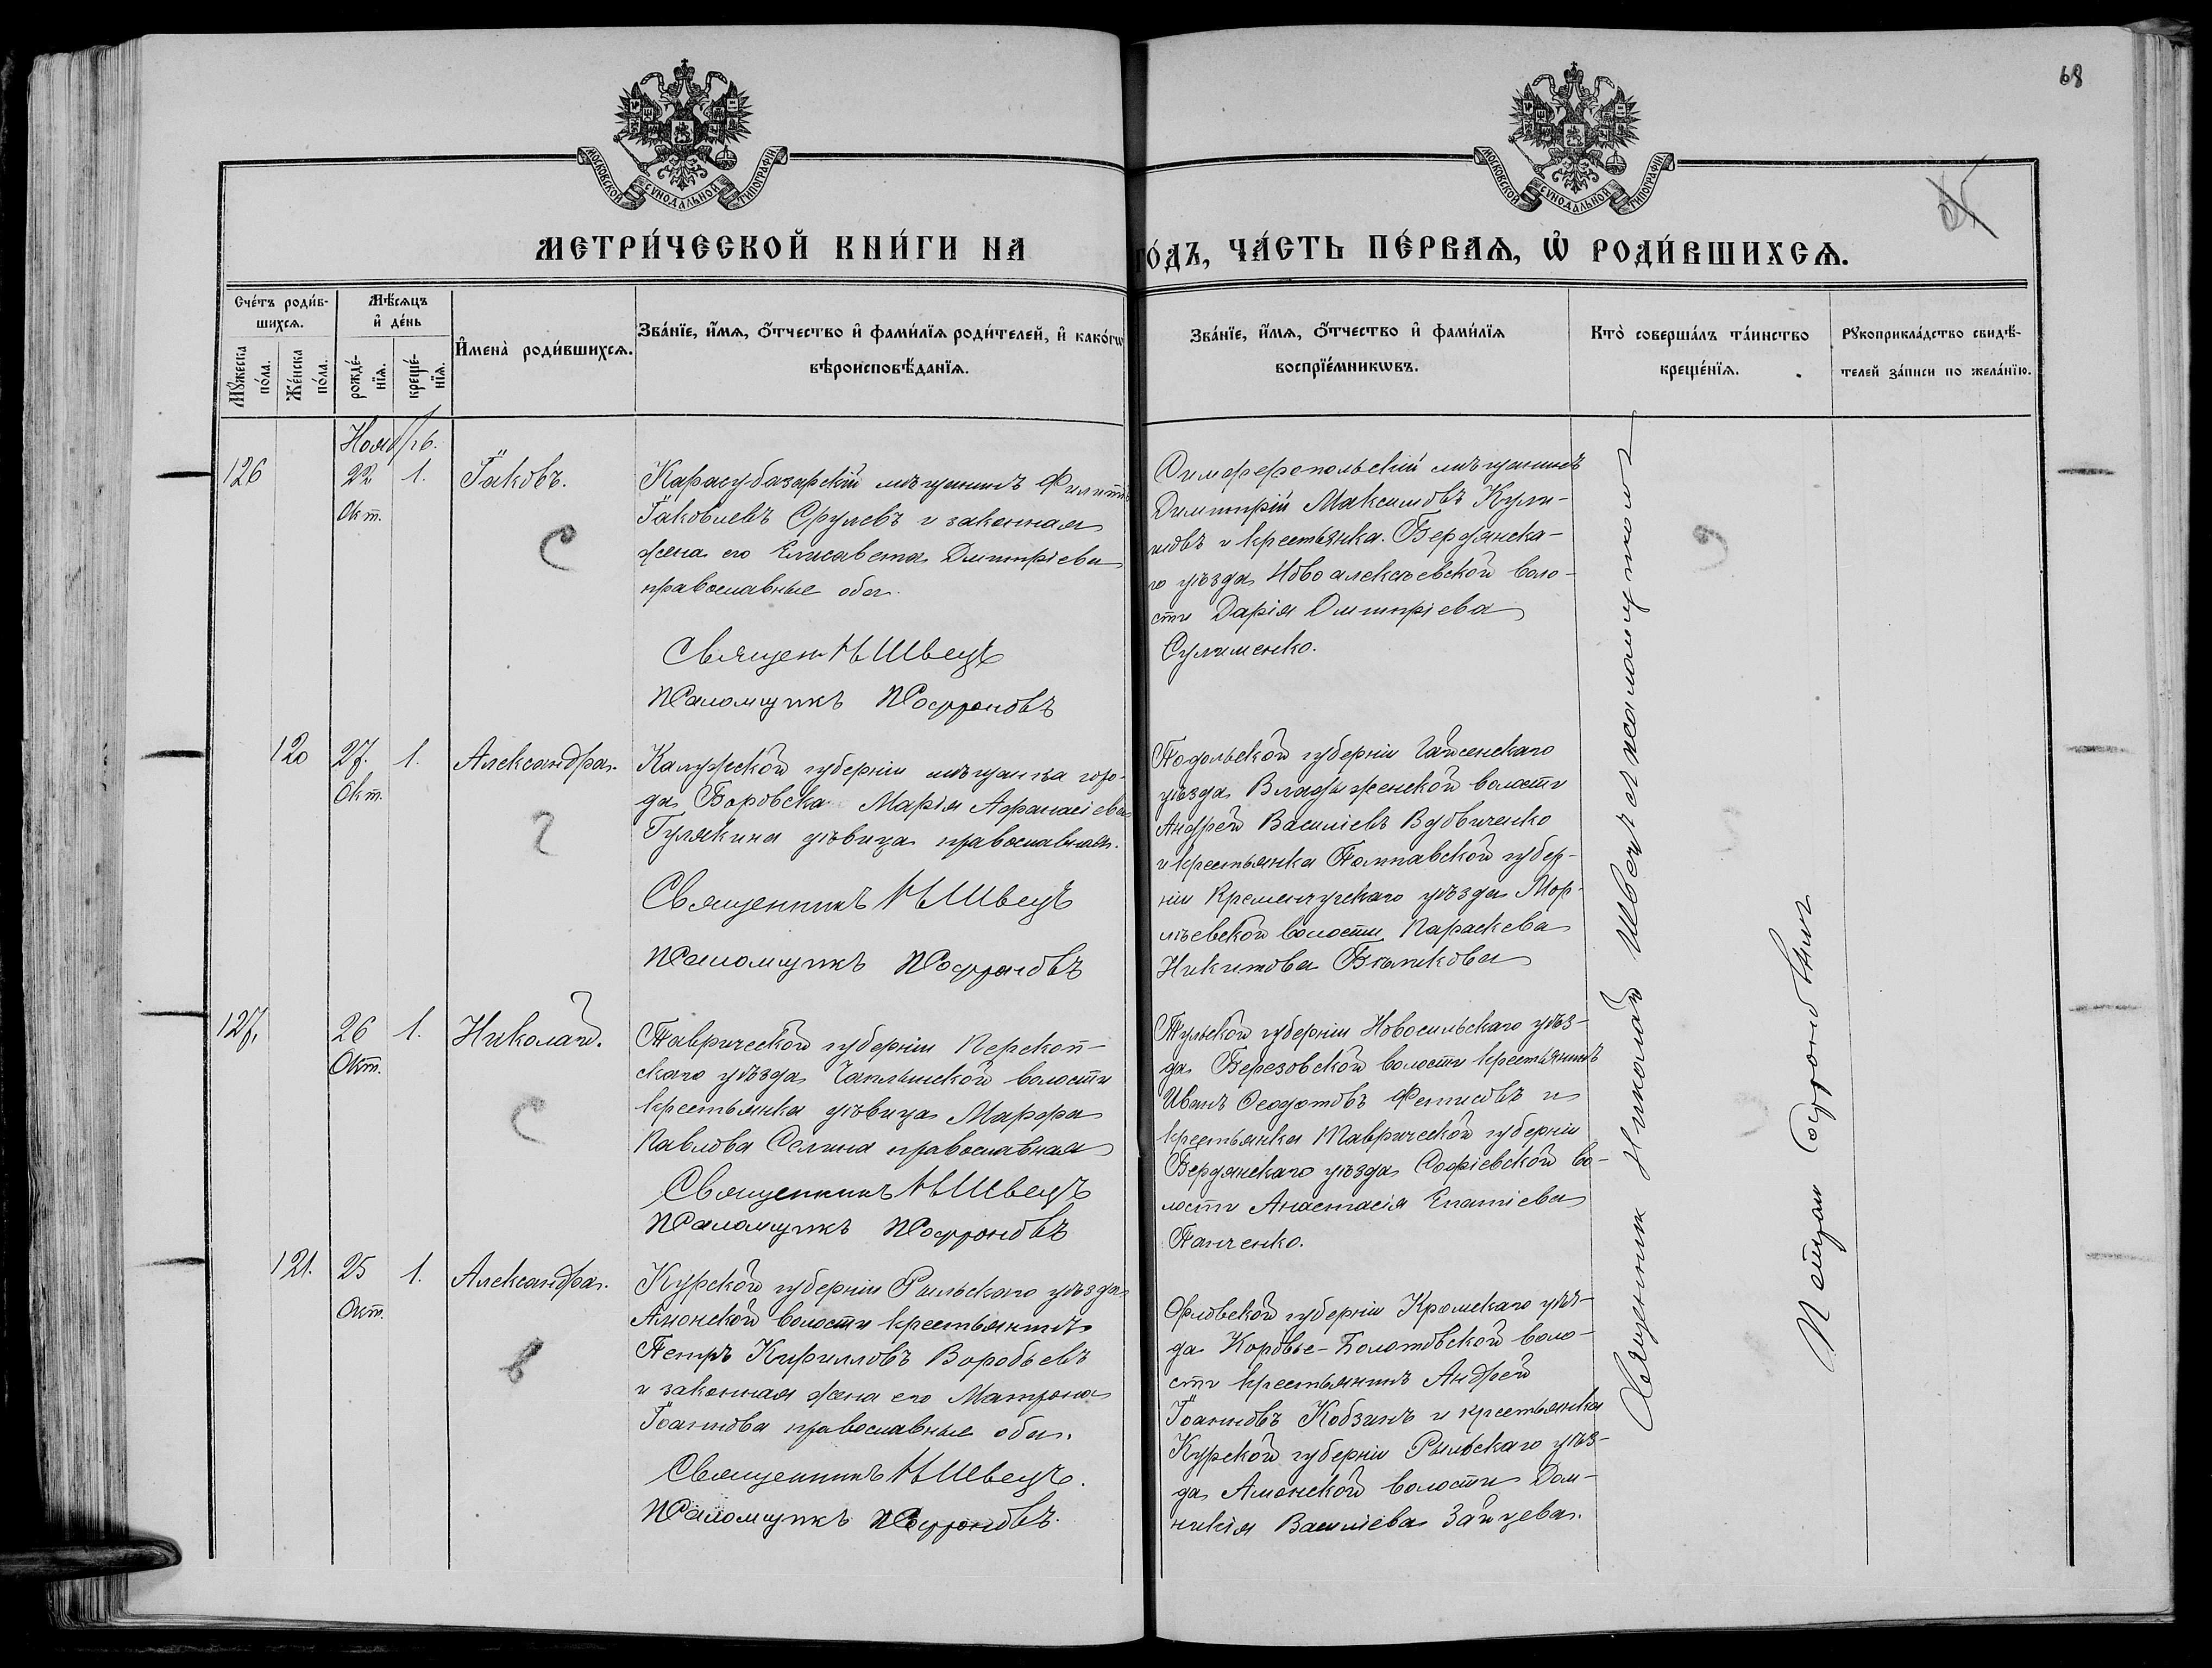 68
МОСКОВСКОЙ СѴНОДАЛЬНОЙ ТИПОГРАФІИ
МОСКОВСКОЙ СѴНОДАЛЬНОЙ ТИПОГРАФІИ
МЕТРИ́ЧЕСКОЙ КНИ́ГИ НА
ГО́ДЪ, ЧА́СТЬ ПЕ́РВАѦ, Ѡ҆ РОДИ́ВШИХСѦ.
Сче́тъ роди́в-
шихсѧ.
Мꙋ́жеска
по́ла.
Же́нска
по́ла.
Мѣ́сѧцъ
и҆ де́нь
рожде́-
нїѧ.
креще́-
нїѧ.
И҆мена̀ роди́вшихсѧ.
Зва́нїе, и҆́мѧ, ѻ҆́тчество и҆ фами́лїѧ роди́телей, и҆ како́гѡ
вѣроисповѣ́данїѧ.
Зва́нїе, и҆́мѧ, ѻ҆́тчество и҆ фами́лїѧ
воспрїе́мникѡвъ.
Кто̀ соверша́лъ та́инство
креще́нїѧ.
Рꙋкоприкла́дство свидѣ́-
телей за́писи по жела́нїю.
Ноябрь.
126
22
Окт.
1.
Іаковъ.
Карасубазарскій мѣщанинъ Филиппъ
Іаковлевъ Срулевъ и законная
жена его Елисавета Димитріева
православные оба.
Священ Н Швецъ
Псаломщикъ П Софроновъ
Симферопольскій мѣщанинъ
Димитрій Максимовъ Кули-
ковъ и крестьянка Бердянска-
го уѣзда Новоалексѣевской воло-
сти Дарія Димитріева
Сулименко.
120
27.
Окт.
1.
Александра.
Калужской губерніи мѣщанка горо-
да Боровска Марія Афанасіева
Гулякина дѣвица православная.
Священникъ Н Швецъ
Псаломщикъ П Софроновъ
Подольской губерніи Гайсенскаго
уѣзда волости
Андрей Василіевъ Вдовиченко
и крестьянка Полтавской губер-
ніи Кременчугскаго уѣзда
волости Параскева
Никитова Бѣликова
127.
26
Окт.
1.
Николай.
Таврической губерніи Перекоп-
скаго уѣзда Чаплынской волости
крестьянка дѣвица Марфа
Павлова Селина православная
Священникъ Н Швецъ
Псаломщикъ П Софроновъ
Тульской губерніи Новосильскаго уѣз-
да Березовской волости крестьянинъ
Иванъ Ѳеодотовъ Фетисовъ и
крестьянка Таврической губерніи
Бердянскаго уѣзда Софіевской во-
лости Анастасія Епатіева
Панченко.
121.
25
Окт.
1.
Александра.
Курской губерніи Рыльскаго уѣзда
Амонской волости крестьянинъ
Петръ Кирилловъ Воробьевъ
и законная жена его Матрона
Іоаннова православные оба.
Священникъ Н Швецъ.
Псаломщикъ П Софроновъ.
Орловской губерніи Кромскаго уѣз-
да Коровье-Болотовской воло-
сти крестьянинъ Андрей
Іоанновъ Кобзинъ и крестьянка
Курской губерніи Рыльскаго уѣз-
да Амонской волости Дом-
никія Василіева Зайцева.
Священникъ Николай Швецъ съ псаломщикомъ
Петромъ Софроновымъ